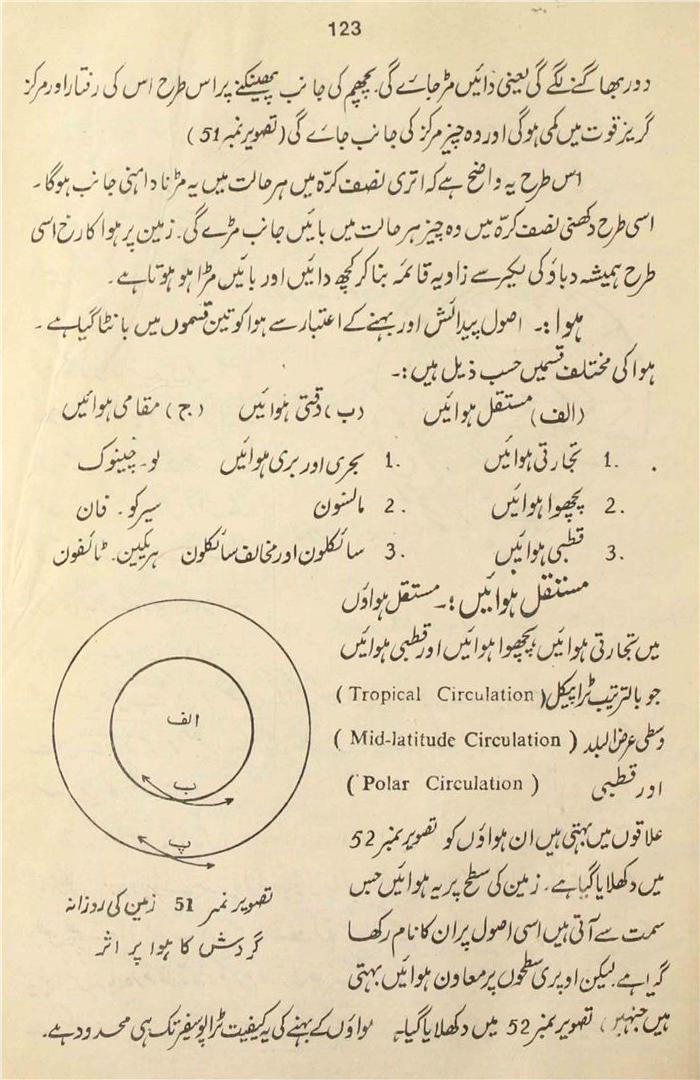 123
دور بھاگنے لگے گی یعنی دائیں مڑ جائے گی۔ پچھم کی جانب پھینکنے پر اس طرح اس کی رفتار اور مرکز
گریز قوت میں کمی ہوگی اور وہ چیز مرکز کی جانب جائے گی (تصویر نمبر 51)
اس طرح یہ واضح ہے کہ اتری نصف کرّہ میں ہر حالت میں یہ مڑنا داہنی جانب ہوگا۔
اسی طرح دکھنی نصف کرّہ میں وہ چیز ہر حالت میں بائیں جانب مڑے گی۔ زمین پر ہوا کا رخ اسی
طرح ہمیشہ دباؤ کی لکیر سے زاویہ قائمہ بنا کر کچھ دائیں اور بائیں مڑا ہو ہوتا ہے۔
ہوا:۔ اصول پیدائش اور بہنے کے اعتبار سے ہوا کو تین قسموں میں بانٹا گیا ہے۔
ہوا کی مختلف قسمیں حسب ذیل ہیں:۔
(الف) مستقل ہوائیں (ب) وقتی ہوائیں (ج) مقامی ہوائیں
1. تجارتی ہوائیں 1. بحری اور بری ہوائیں لو۔ چینوک
2. پچھوا ہوائیں 2. مانسون سیرکو۔ فان
3. قطبی ہوائیں 3. سائکلون اور مخالف سائکلون ہریکین۔ ٹائفون
مستقل ہوائیں:۔ مستقل ہواؤں
میں تجارتی ہوائیں، پچھوا ہوائیں اور قطبی ہوائیں
جو بالترتیب ٹراپیکل (Tropical Circulation)
وسطی عرض البلد (Mid-latitude Circulation)
اور قطبی (Polar Circulation)
علاقوں میں بہتی ہیں ان ہواؤں کو تصویر نمبر 52
میں دکھلایا گیا ہے۔ زمین کی سطح پر یہ ہوائیں جس
سمت سے آتی ہیں اسی اصول پر ان کا نام رکھا
گیا ہے لیکن اوپری سطحوں پر معاون ہوائیں بہتی
ہیں جنہیں تصویر نمبر 52 میں دکھلایا گیا ہے ہواؤں کے بہنے کی یہ کیفیت ٹراپوسفیر تک ہی محدود ہے۔
الف
ب
پ
تصویر نمبر 51 زمین کی روزانہ
گردش کا ہوا پر اثر